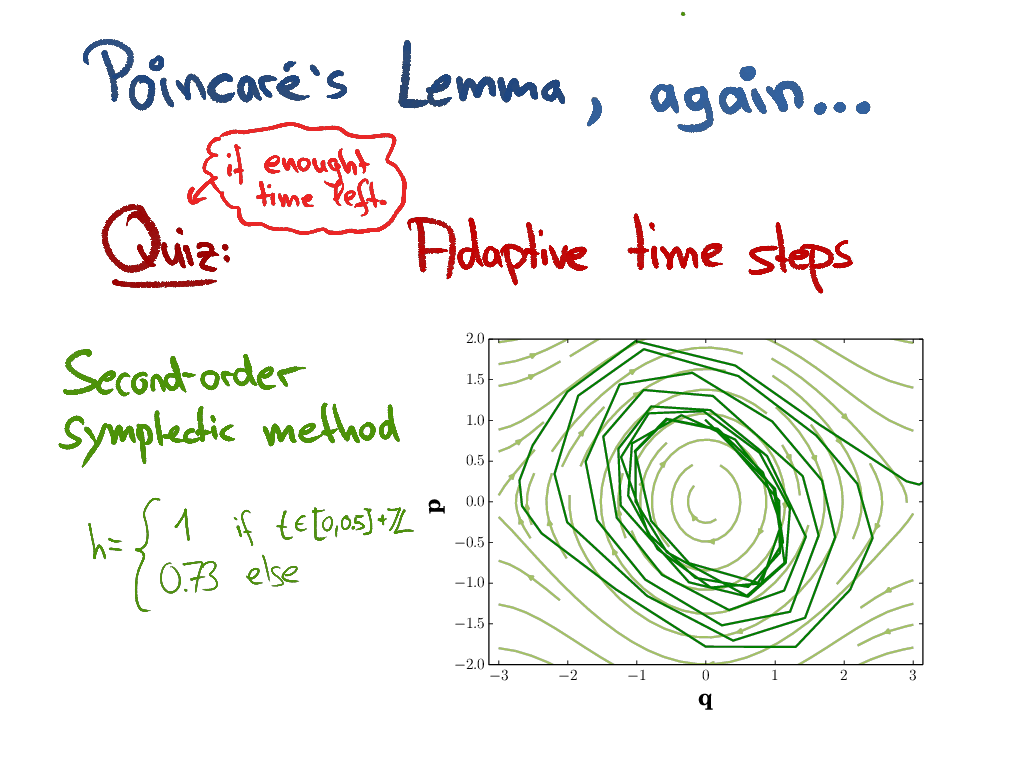 Poincaré's Lemma, again...
if enought
time left.
Quiz: Adaptive time steps
Second-order
symplectic method
h= { 1 if t∈[0,0.5]+ℤ
0.73 else
2.0
1.5
1.0
0.5
0.0
−0.5
−1.0
−1.5
−2.0
p
−3 −2 −1 0 1 2 3
q